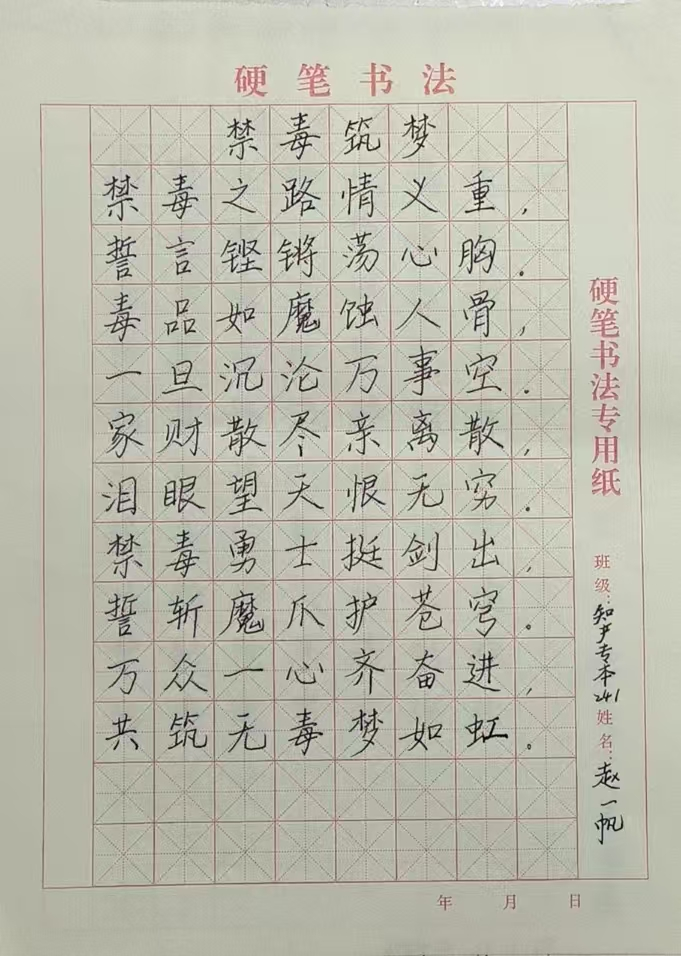 硬笔书法
禁毒筑梦
禁毒之路情义重，
誓言铿锵荡心胸。
毒品如魔蚀人骨，
一旦沉沦万事空。
家财散尽亲离散，
泪眼望天恨无穷。
禁毒勇士挺剑出，
誓斩魔爪护苍穹。
万众一心齐奋进，
共筑无毒梦如虹。
硬笔书法专用纸
班级：知产专本241 姓名：赵一帆
年 月 日